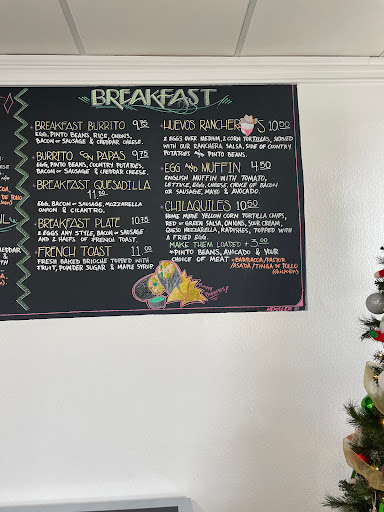 BREAKFAST
BREAKFAST BURRITO 9.75
EGG, PINTO BEANS, RICE, ONION,
BACON OR SAUSAGE & CHEDDAR CHEESE.
BURRITO CON PAPAS 9.75
EGG, PINTO BEANS, COUNTRY POTATOES,
BACON OR SAUSAGE & CHEDDAR CHEESE.
BREAKFAST QUESADILLA
11.50
EGG, BACON OR SAUSAGE, MOZZARELLA
ONION & CILANTRO.
BREAKFAST PLATE 10.75
2 EGGS ANY STYLE, BACON OR SAUSAGE
AND 2 HALFS OF FRENCH TOAST.
FRENCH TOAST 11.00
FRESH BAKED BRIOCHE TOPPED WITH
FRUIT, POWDER SUGAR & MAPLE SYRUP.
HUEVOS RANCHEROS 10.50
2 EGGS OVER MEDIUM, 2 CORN TORTILLAS, SERVED
WITH OUR RANCHERA SALSA, SIDE OF COUNTRY
POTATOES AND PINTO BEANS.
EGG MUFFIN 4.50
ENGLISH MUFFIN WITH TOMATO,
LETTUCE, EGG, CHEESE, CHOICE OF BACON
OR SAUSAGE, MAYO & AVOCADO.
CHILAQUILES 10.50
HOME MADE YELLOW CORN TORTILLA CHIPS,
RED OR GREEN SALSA, ONIONS, SOUR CREAM,
QUESO MOZZARELLA, RADISHES, TOPPED WITH
A FRIED EGG.
MAKE THEM LOADED + 3.00
*PINTO BEANS, AVOCADO & YOUR
CHOICE OF MEAT *BARBACOA/PASTOR
/ASADA/TINGA DE POLLO
(CHICKEN)